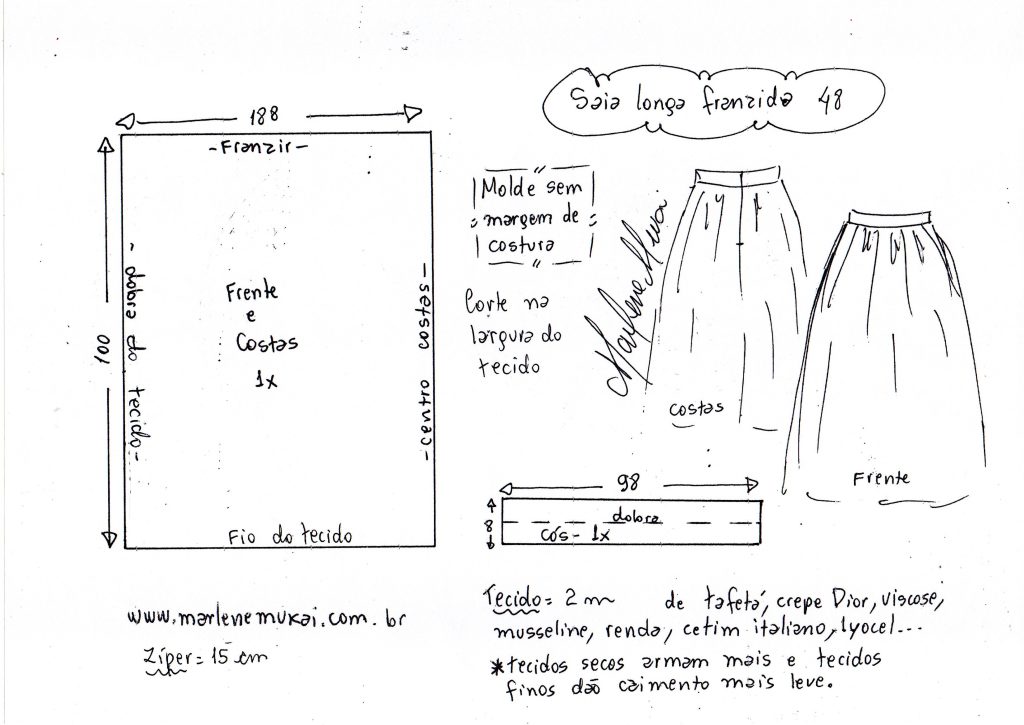 Saia longa franzida 48
188
-Franzir-
100
-dobra do tecido-
Frente
e
Costas
1x
-centro costas-
Fio do tecido
Molde sem
margem de
costura
Corte na
largura do
tecido
Marlene Mukai
costas
Frente
98
8
dobra
cós- 1x
www.marlenemukai.com.br
Zíper= 15 cm
Tecido= 2 m de tafetá, crepe Dior, viscose,
musseline, renda, cetim italiano, lyocel...
*tecidos secos armam mais e tecidos
finos dão caimento mais leve.